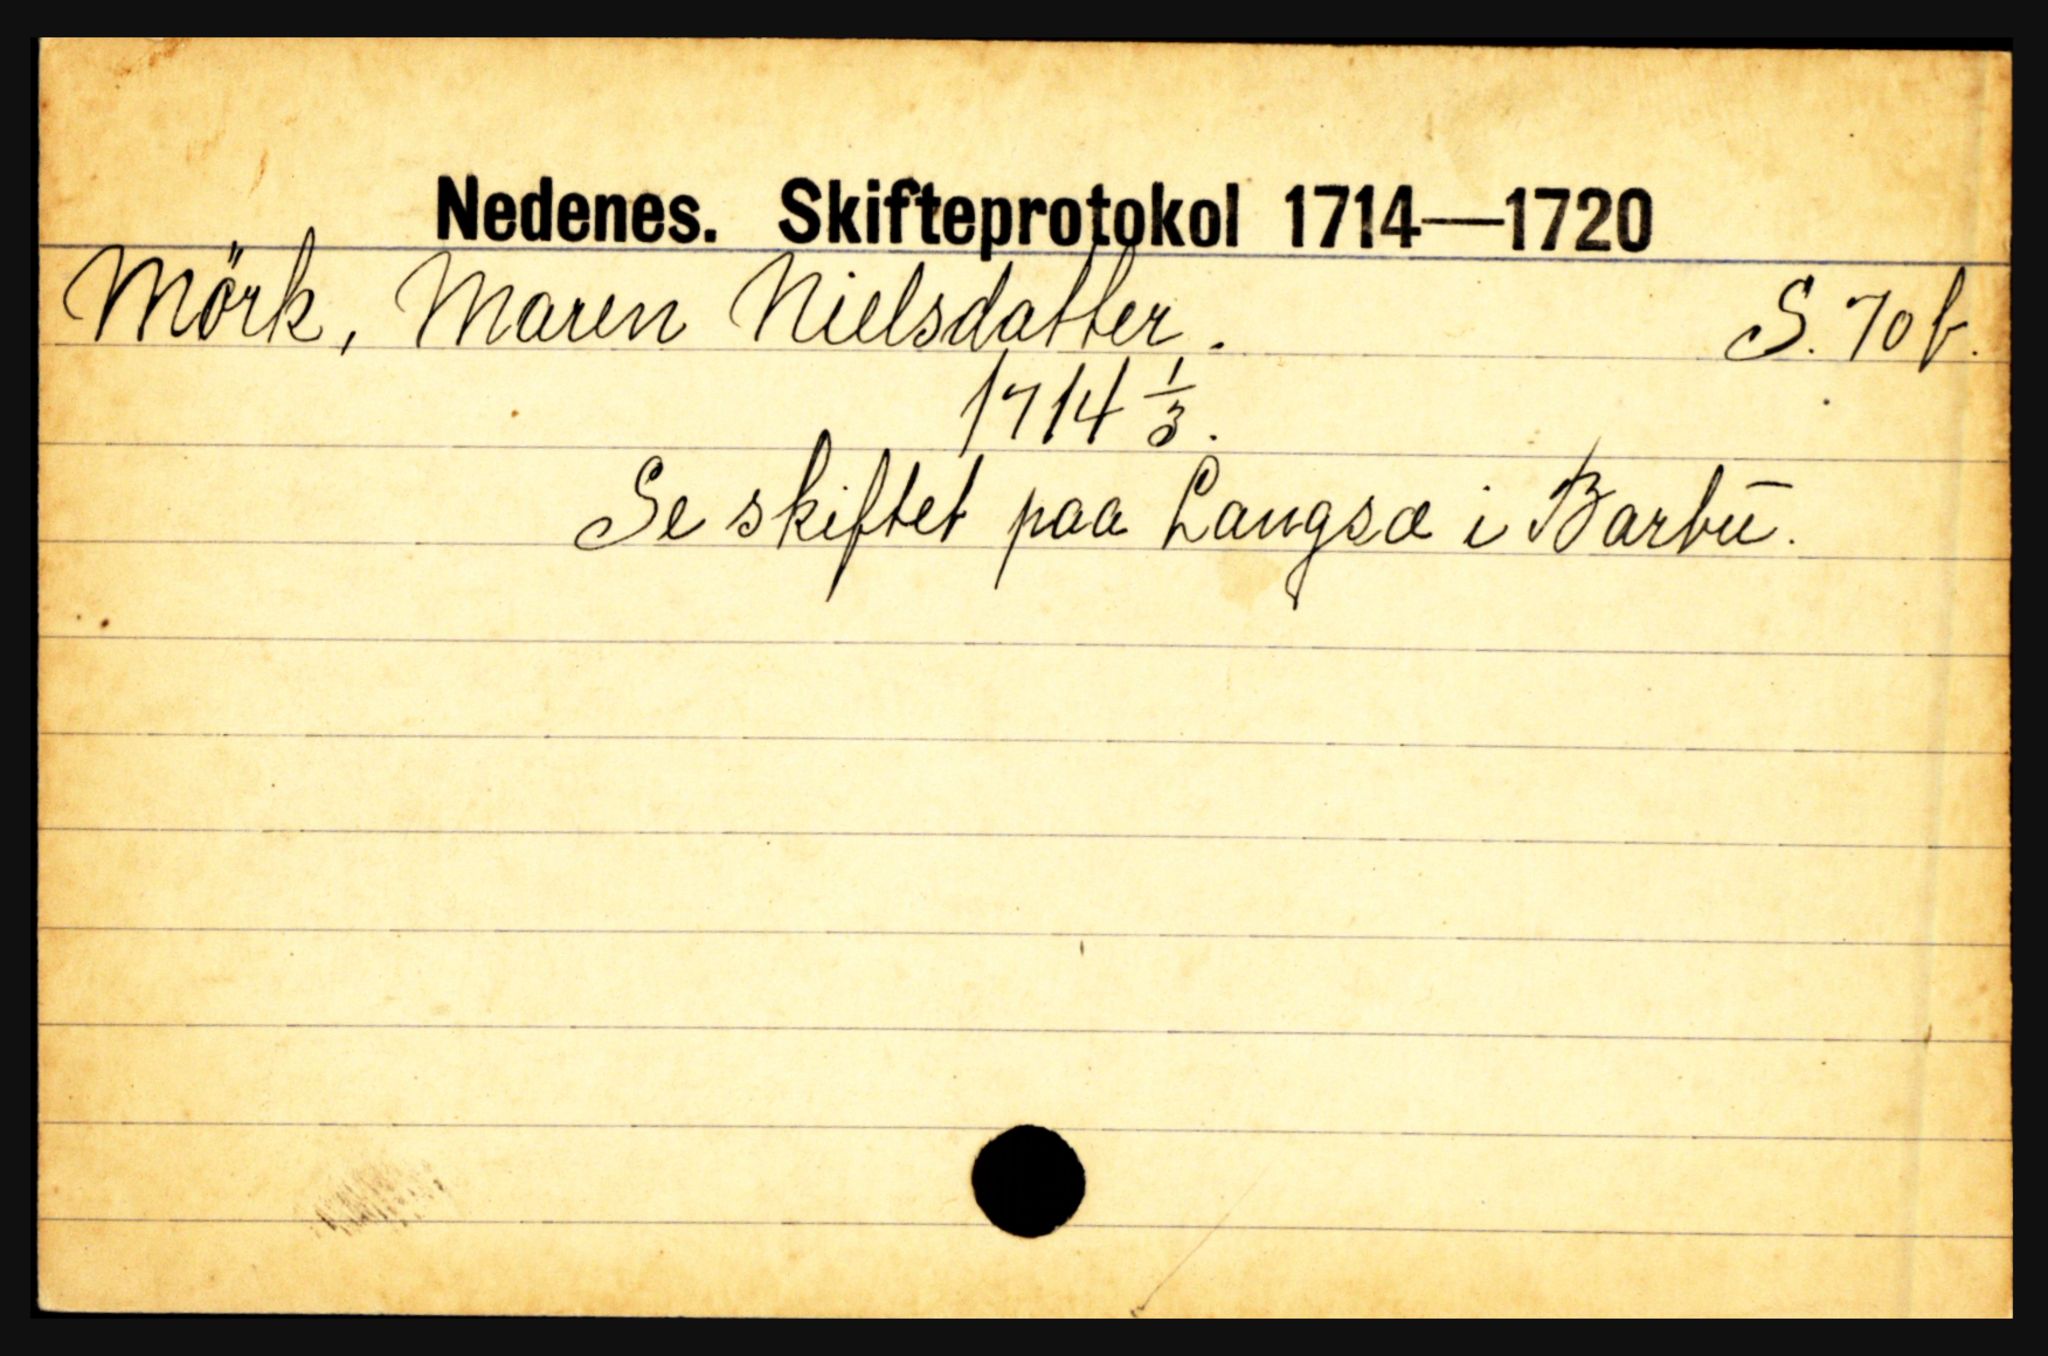 Nedenes. Skifteprotokol 1714—1720
Mörk, Maren Nielsdatter. S. 70 b.
1714 1/3.
Se skiftet paa Langsæ i Barbū.